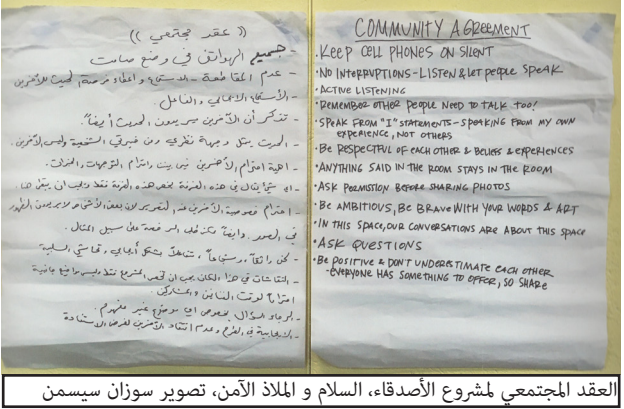 (( عقد مجتمعي ))
- جميع الهواتف في وضع صامت
- عدم المقاطعة - الاستماع واعطاء فرصة الحديث للآخرين
- الأستماع الايجابي والفاعل
- تذكر أن الآخرين يريدون الحديث أيضاً.
- الحديث يمثل وجهة نظري ومن خبرتي الشخصية وليس الآخرين.
- اهمية احترام الآخرين فيما بيننا واحترام التوجهات والخبرات.
- اي شيء يقال في هذه الغرفة يخص هذه الغرفة فقط ويجب ان يبقى هنا.
- احترام خصوصية الآخرين عند التصوير لان بعض الأشخاص لا يريدون الظهور
في الصور.
- كن رائعاً وشجاعاً
- النقاشات في هذا المكان يجب ان تخص المشروع فقط وليس مواضيع جانبية
احتراماً لوقت الفنانين والمشاركين.
- الرجاء السؤال بخصوص اي موضوع غير مفهوم.
- الايجابية في الطرح وعدم انتقاد الآخرين لغرض الاستفادة
COMMUNITY AGREEMENT
• KEEP CELL PHONES ON SILENT
• NO INTERRUPTIONS - LISTEN & LET PEOPLE SPEAK
• ACTIVE LISTENING
• REMEMBER OTHER PEOPLE NEED TO TALK TOO!
• SPEAK FROM "I" STATEMENTS - SPEAKING FROM MY OWN
EXPERIENCE, NOT OTHERS
• BE RESPECTFUL OF EACH OTHER & BELIEFS & EXPERIENCES
• ANYTHING SAID IN THE ROOM STAYS IN THE ROOM
• ASK PERMISSION BEFORE SHARING PHOTOS
• BE AMBITIOUS, BE BRAVE WITH YOUR WORDS & ART
• IN THIS SPACE, OUR CONVERSATIONS ARE ABOUT THIS SPACE
• ASK QUESTIONS
• BE POSITIVE & DON'T UNDERESTIMATE EACH OTHER
- EVERYONE HAS SOMETHING TO OFFER, SO SHARE
العقد المجتمعي لمشروع الأصدقاء، السلام و الملاذ الآمن، تصوير سوزان سيسمن